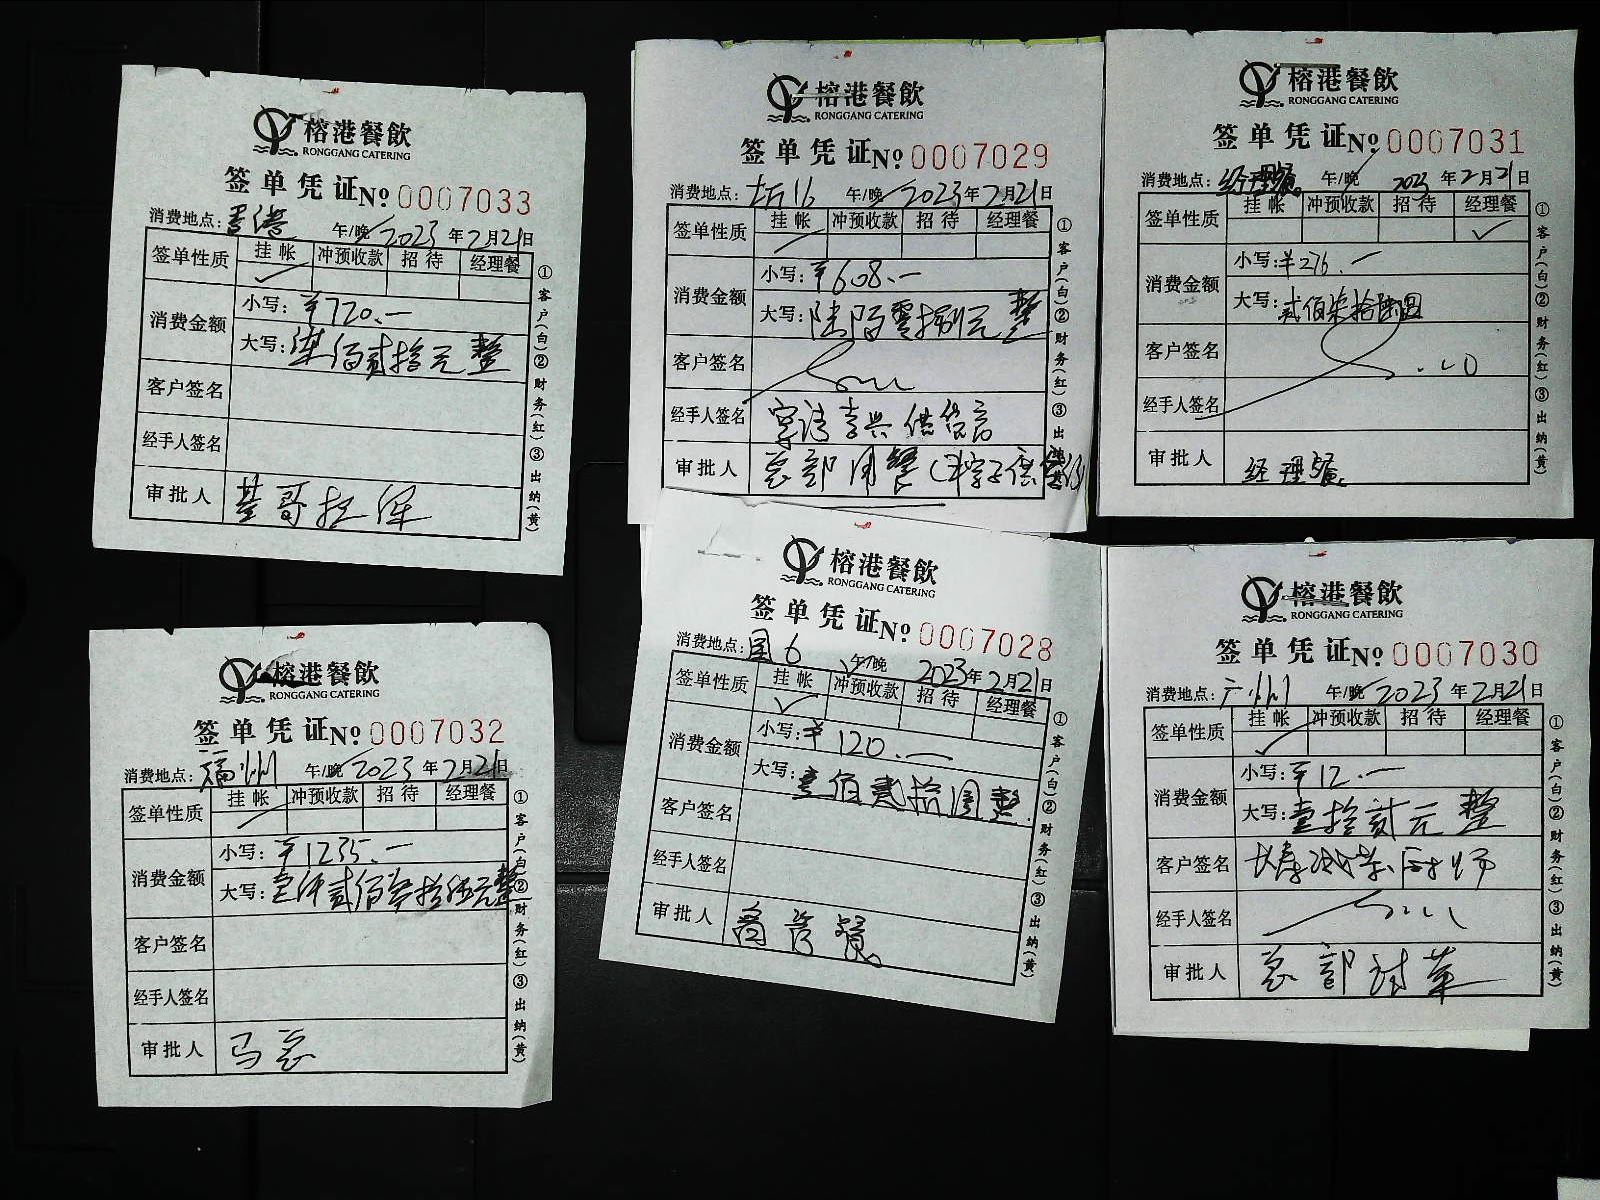 榕港餐飲
RONGGANG CATERING
签单凭证№ 0007033
消费地点: 香港 午/晚 2023年2月21日
签单性质 挂帐 冲预收款 招待 经理餐
✓
消费金额 小写: ¥720.一
大写: 柒佰贰拾元整
客户签名
经手人签名
审批人
①客户(白)②财务(红)③出纳(黄)
榕港餐飲
RONGGANG CATERING
签单凭证№ 0007029
消费地点: 16 午/晚 2023年2月21日
签单性质 挂帐 冲预收款 招待 经理餐
消费金额 小写: ¥608.一
大写: 陆佰零捌元整
客户签名
经手人签名
审批人 总部用餐
①客户(白)②财务(红)③出纳(黄)
榕港餐飲
RONGGANG CATERING
签单凭证№ 0007031
消费地点: 经理餐 午/晚 2023年2月21日
签单性质 挂帐 冲预收款 招待 经理餐
✓
消费金额 小写: ¥276.一
大写: 贰佰柒拾陆圆
客户签名
经手人签名
审批人 经理餐
①客户(白)②财务(红)③出纳(黄)
榕港餐飲
RONGGANG CATERING
签单凭证№ 0007032
消费地点: 福州 午/晚 2023年2月21日
签单性质 挂帐 冲预收款 招待 经理餐
消费金额 小写: ¥1235.一
大写: 壹仟贰佰叁拾伍元整
客户签名
经手人签名
审批人 马总
①客户(白)②财务(红)③出纳(黄)
榕港餐飲
RONGGANG CATERING
签单凭证№ 0007028
消费地点: 国6 午/晚 2023年2月21日
签单性质 挂帐 冲预收款 招待 经理餐
✓
消费金额 小写: ¥120.一
大写: 壹佰贰拾圆整
客户签名
经手人签名
审批人
①客户(白)②财务(红)③出纳(黄)
榕港餐飲
RONGGANG CATERING
签单凭证№ 0007030
消费地点: 广州 午/晚 2023年2月21日
签单性质 挂帐 冲预收款 招待 经理餐
✓
消费金额 小写: ¥12.一
大写: 壹拾贰元整
客户签名
经手人签名
审批人 总部
①客户(白)②财务(红)③出纳(黄)